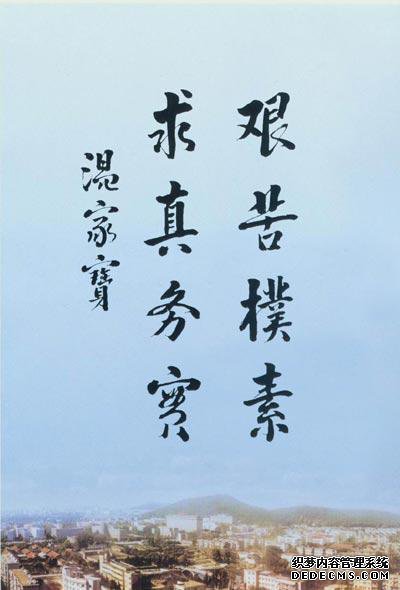 艰苦樸素
求真务实
温家寳
织梦内容管理系统
DEDECMS.COM